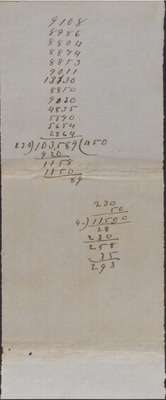 9108
8986
8804
8874
8853
9011
13730
8850
9230
4835
5590
5654
2864
230)103,589(450
920
1158
1150
89
230
50
4)11500
28
230
258
35
293